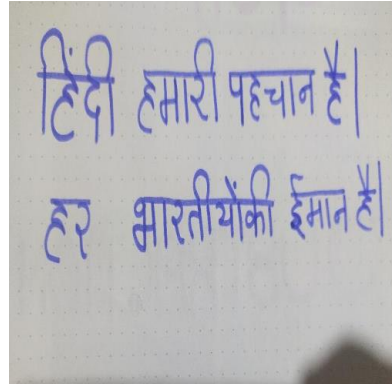 हिंदी हमारी पहचान है|
हर भारतीयोंकी ईमान है|